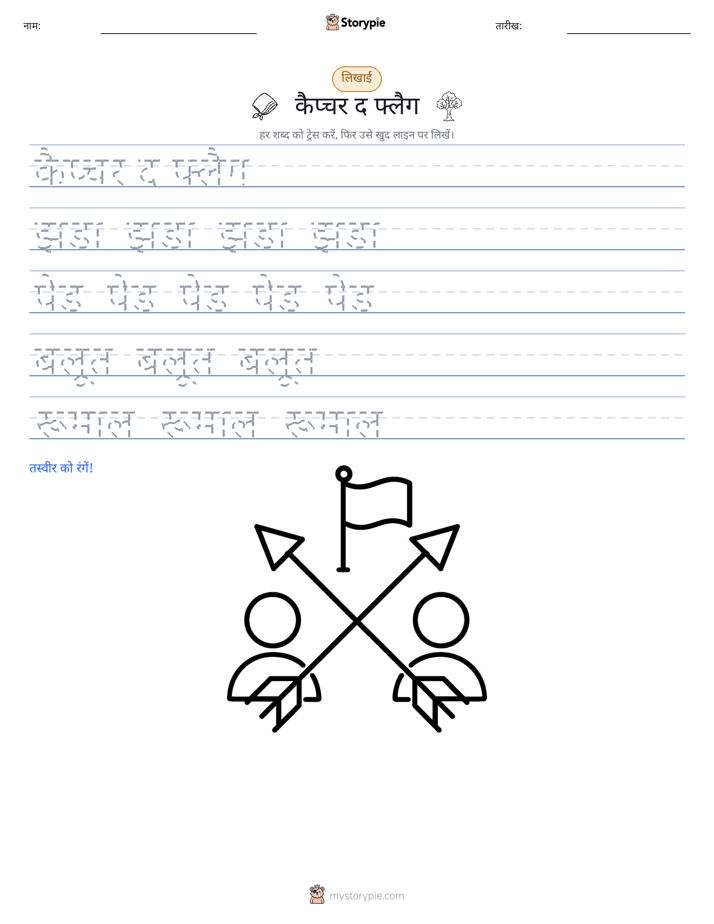 नाम:
Storypie
तारीख:
लिखाई
कैप्चर द फ्लैग
हर शब्द को ट्रेस करें, फिर उसे खुद लाइन पर लिखें।
कैप्चर द फ्लैग
झडा झडा झडा झडा
पेड पेड पेड पेड पेड
बलूत बलूत बलूत
रूमाल रूमाल रूमाल
तस्वीर को रंगें!
mystorypie.com